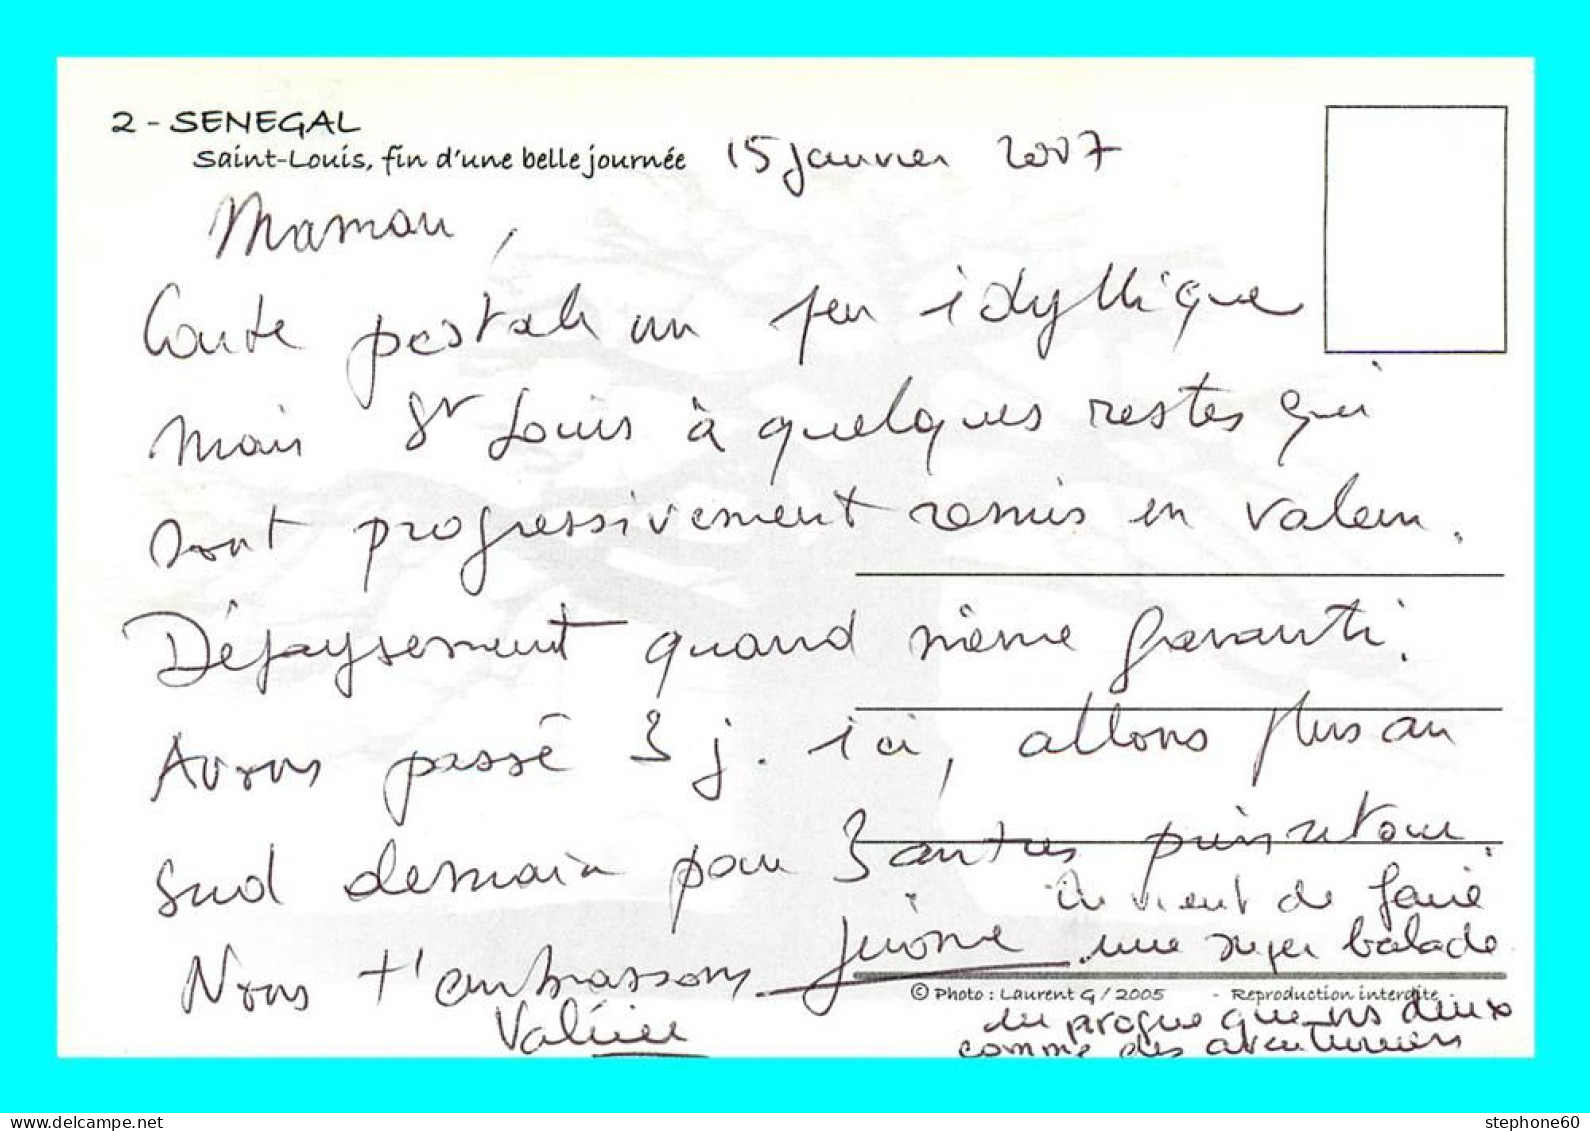 2 - SENEGAL
Saint-Louis, fin d'une belle journée
15 janvier 2007
Maman,
Carte postale un peu idyllique
mais St Louis à quelques restes qui
sont progressivement remis en valeur.
Dépaysement quand même garanti.
Avons passé 3 j. ici, allons plus au
sud demain pour 3 autres puis retour.
Nous t'embrassons. Jérôme
Valérie
On vient de faire
une super balade
en pirogue que ns deux
comme des aventuriers
© Photo : Laurent G / 2005 - Reproduction interdite
stephone60